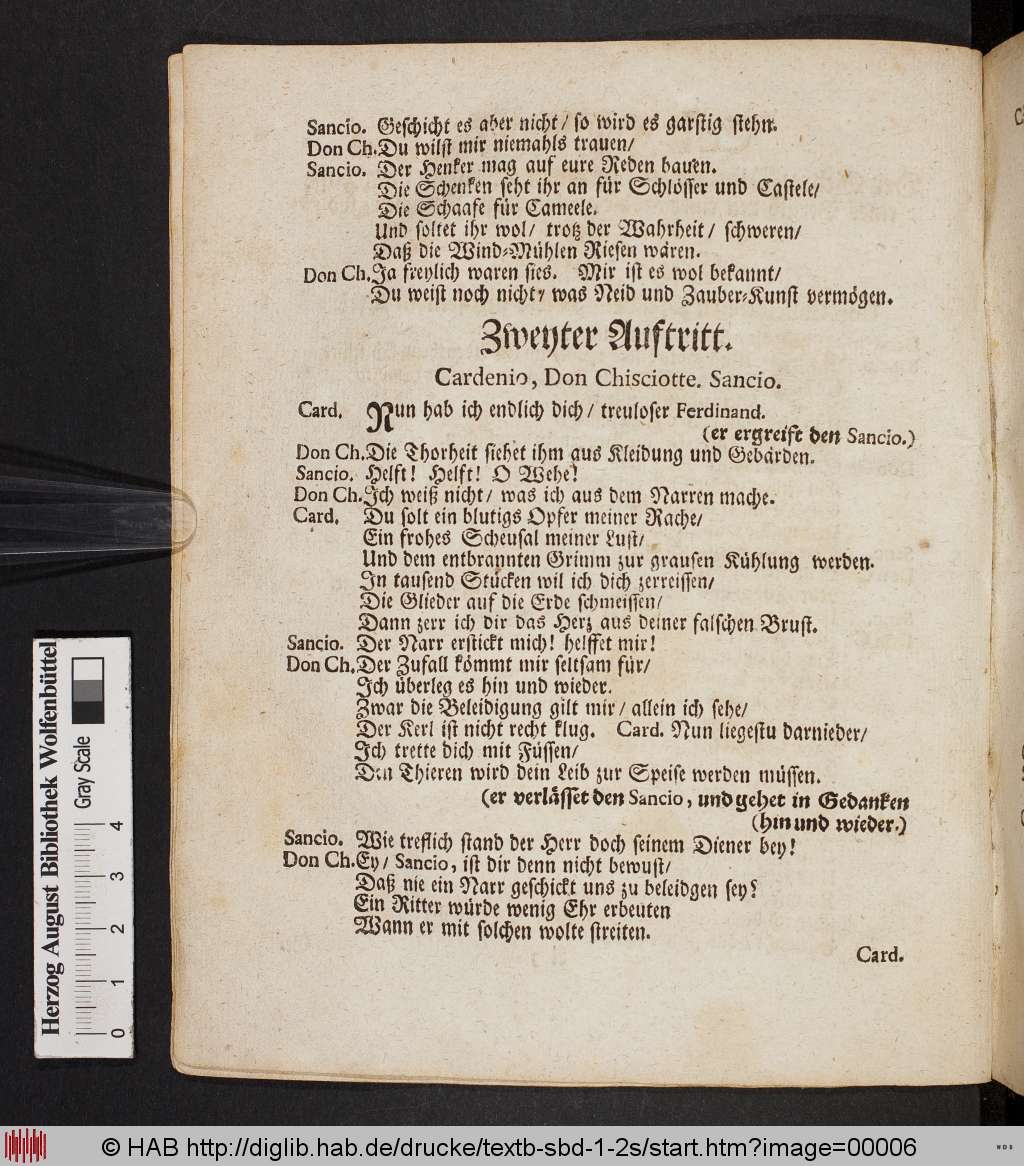 Sancio. Geschicht es aber nicht/ so wird es garstig stehn.
Don Ch. Du wilst mir niemahls trauen/
Sancio. Der Henker mag auf eure Reden bauen.
Die Schenken seht ihr an für Schlösser und Castele/
Die Schaafe für Cameele.
Und soltet ihr wol/ trotz der Wahrheit/ schweren/
Daß die Wind-Mühlen Riesen wären.
Don Ch. Ja freylich waren sies. Mir ist es wol bekannt/
Du weist noch nicht, was Neid und Zauber-Kunst vermögen.
Zweyter Auftritt.
Cardenio, Don Chisciotte. Sancio.
Card. Nun hab ich endlich dich/ treuloser Ferdinand.
(er ergreift den Sancio.)
Don Ch. Die Thorheit siehet ihm aus Kleidung und Gebärden.
Sancio. Helft! Helft! O Wehe!
Don Ch. Ich weiß nicht/ was ich aus dem Narren mache.
Card. Du solt ein blutigs Opfer meiner Rache/
Ein frohes Scheusal meiner Lust/
Und dem entbrannten Grimm zur grausen Kühlung werden.
In tausend Stücken wil ich dich zerreissen/
Die Glieder auf die Erde schmeissen/
Dann zerr ich dir das Herz aus deiner falschen Brust.
Sancio. Der Narr erstickt mich! helffet mir!
Don Ch. Der Zufall kömmt mir seltsam für/
Ich überleg es hin und wieder.
Zwar die Beleidigung gilt mir/ allein ich sehe/
Der Kerl ist nicht recht klug. Card. Nun liegestu darnieder/
Ich trette dich mit Füssen/
Den Thieren wird dein Leib zur Speise werden müssen.
(er verlässet den Sancio, und gehet in Gedanken
(hin und wieder.)
Sancio. Wie treflich stand der Herr doch seinem Diener bey!
Don Ch. Ey/ Sancio, ist dir denn nicht bewust/
Daß nie ein Narr geschickt uns zu beleidgen sey?
Ein Ritter würde wenig Ehr erbeuten
Wann er mit solchen wolte streiten.
Card.
Herzog August Bibliothek Wolfenbüttel
Gray Scale
0 1 2 3 4
© HAB http://diglib.hab.de/drucke/textb-sbd-1-2s/start.htm?image=00006